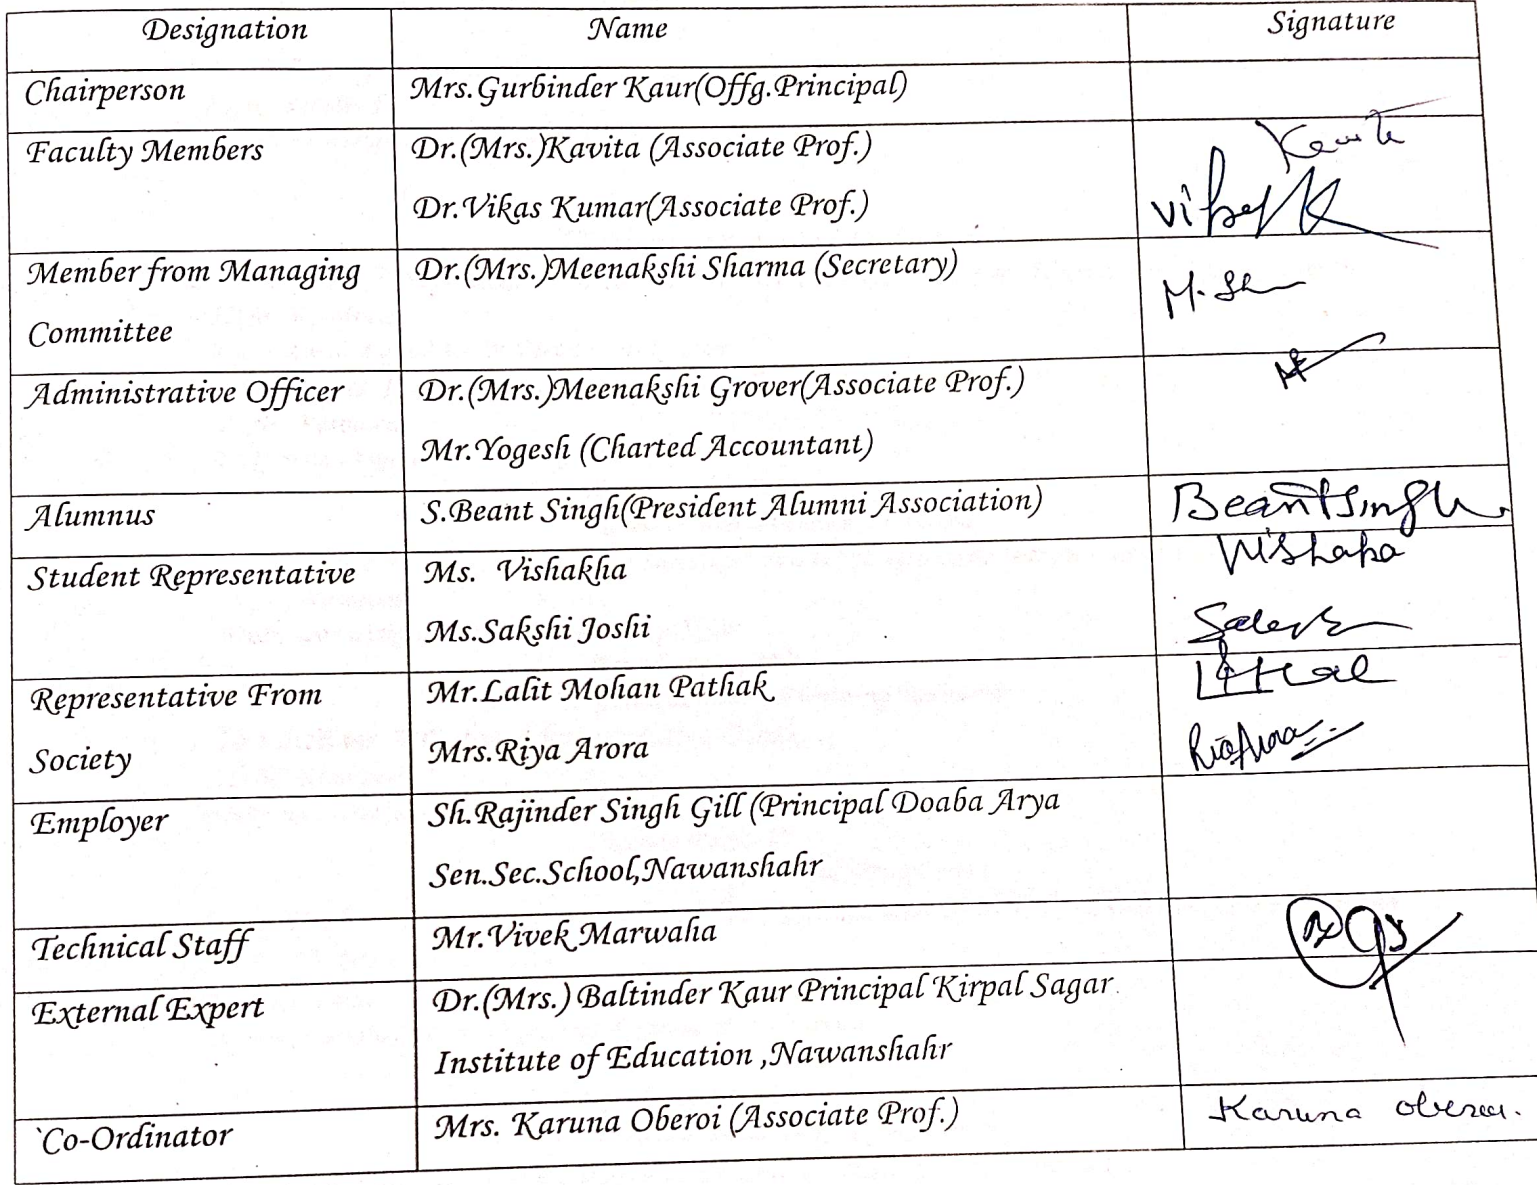 Designation Name Signature
Chairperson Mrs.Gurbinder Kaur(Offg.Principal)
Faculty Members Dr.(Mrs.)Kavita (Associate Prof.) Kavita
Dr.Vikas Kumar(Associate Prof.)
Member from Managing Dr.(Mrs.)Meenakshi Sharma (Secretary) M. Sh
Committee
Administrative Officer Dr.(Mrs.)Meenakshi Grover(Associate Prof.)
Mr.Yogesh (Charted Accountant)
Alumnus S.Beant Singh(President Alumni Association) Beant Singh
Student Representative Ms. Vishakha Vishaka
Ms.Sakshi Joshi
Representative From Mr.Lalit Mohan Pathak
Society Mrs.Riya Arora Ria Arora
Employer Sh.Rajinder Singh Gill (Principal Doaba Arya
Sen.Sec.School,Nawanshahr
Technical Staff Mr.Vivek Marwaha
External Expert Dr.(Mrs.) Baltinder Kaur Principal Kirpal Sagar
Institute of Education ,Nawanshahr
`Co-Ordinator Mrs. Karuna Oberoi (Associate Prof.) Karuna Oberoi.